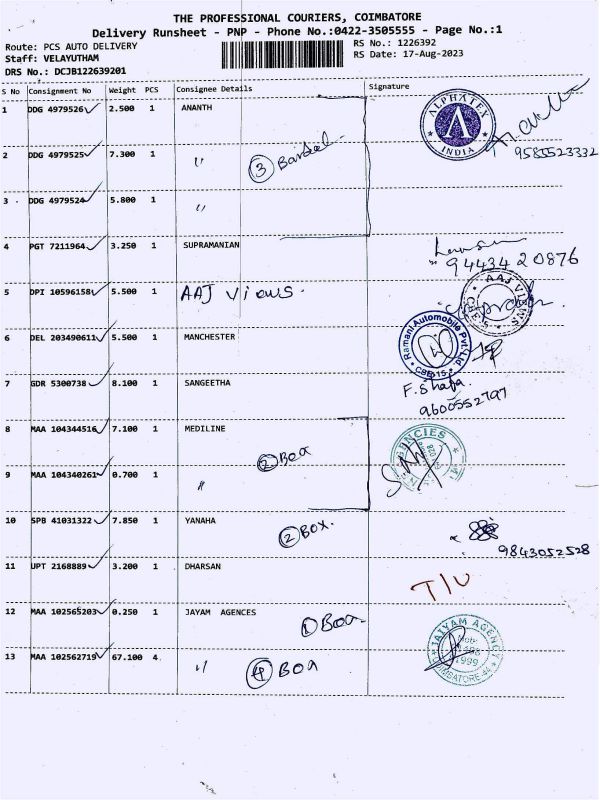 THE PROFESSIONAL COURIERS, COIMBATORE
Delivery Runsheet - PNP - Phone No.:0422-3505555 - Page No.:1
Route: PCS AUTO DELIVERY
RS No.: 1226392
Staff: VELAYUTHAM
RS Date: 17-Aug-2023
DRS No.: DCJB122639201
S No Consignment No Weight PCS Consignee Details Signature
1 DDG 4979526 2.500 1 ANANTH
ALPHATEX INDIA
9585523332
2 DDG 4979525 7.300 1 〃 3
3 DDG 4979524 5.800 1 〃
4 PGT 7211964 3.250 1 SUPRAMANIAN
9443420876
5 DPI 10596158 5.500 1 AAJ Views.
AAJ VIEWS CBE
6 DEL 203490611 5.500 1 MANCHESTER
Ramani Automobile Pvt Ltd CBE-15
7 GDR 5300738 8.100 1 SANGEETHA
F. Shafa
9600552797
8 MAA 104344516 7.100 1 MEDILINE
2 Box
9 MAA 104340261 0.700 1 〃
10 SPB 41031322 7.850 1 YANAHA
2 BOX.
9843052528
11 UPT 2168889 3.200 1 DHARSAN
T/U
12 MAA 102565203 0.250 1 JAYAM AGENCES
1 Box
JAIYAM AGENCY COIMBATORE-44
13 MAA 102562719 67.100 4 〃 4 Box